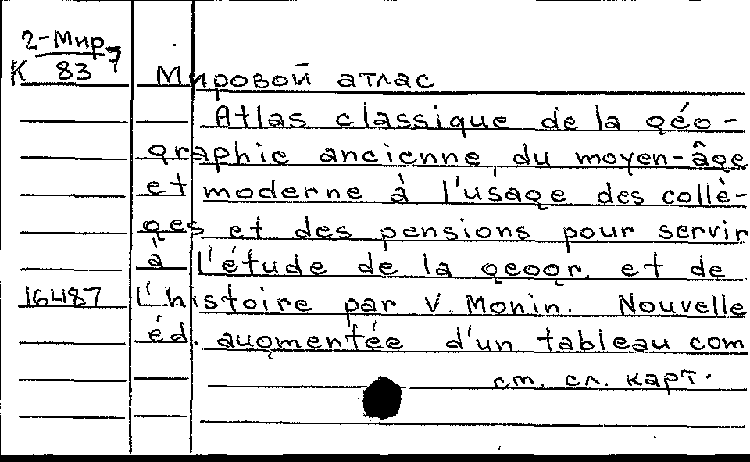 2-Мир
К 83
Мировой атлас
Atlas classique de la géo-
graphie ancienne, du moyen-âge
et moderne à l'usage des collè-
ges et des pensions pour servir
à l'étude de la geogr. et de
16487 l'histoire par V. Monin. Nouvelle
éd. augmentée d'un tableau com
см. сл. карт.